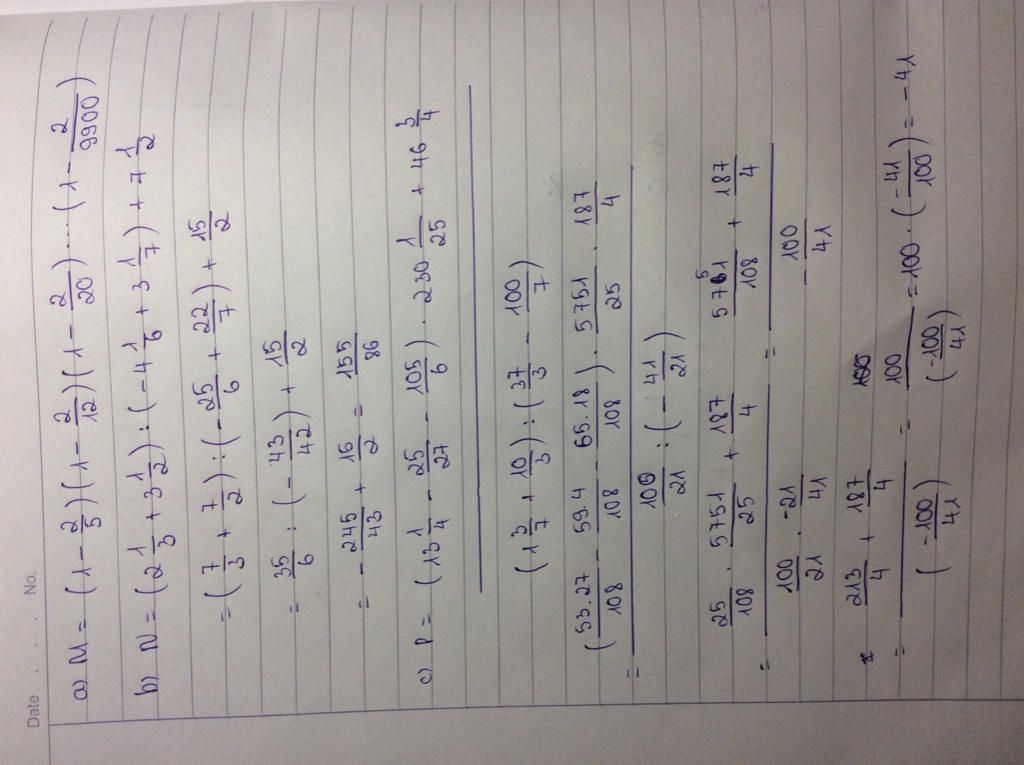 Date . . . No.
a) M = (1 - 2/5)(1 - 2/12)(1 - 2/20)...(1 - 2/9900)
b) N = (2 1/3 + 3 1/2) : (-4 1/6 + 3 1/7) + 7 1/2
= (7/3 + 7/2) : (-25/6 + 22/7) + 15/2
= 35/6 : (-43/42) + 15/2
= -245/43 + 16/2 = 155/86
c) P = (13 1/4 - 25/27 - 105/6) . 230 1/25 + 46 3/4
(1 3/7 + 10/3) : (37/3 - 100/7)
= (53.27/108 - 59.4/108 - 65.18/108) . 5751/25 . 187/4
100/21 : (-41/21)
= 25/108 . 5751/25 + 187/4 = 5751/108 + 187/4
100/21 . -21/41 = -100/41
= 213/4 + 187/4 = 100 = 100 . (-41/100) = -41
(-100/41) (-100/41)